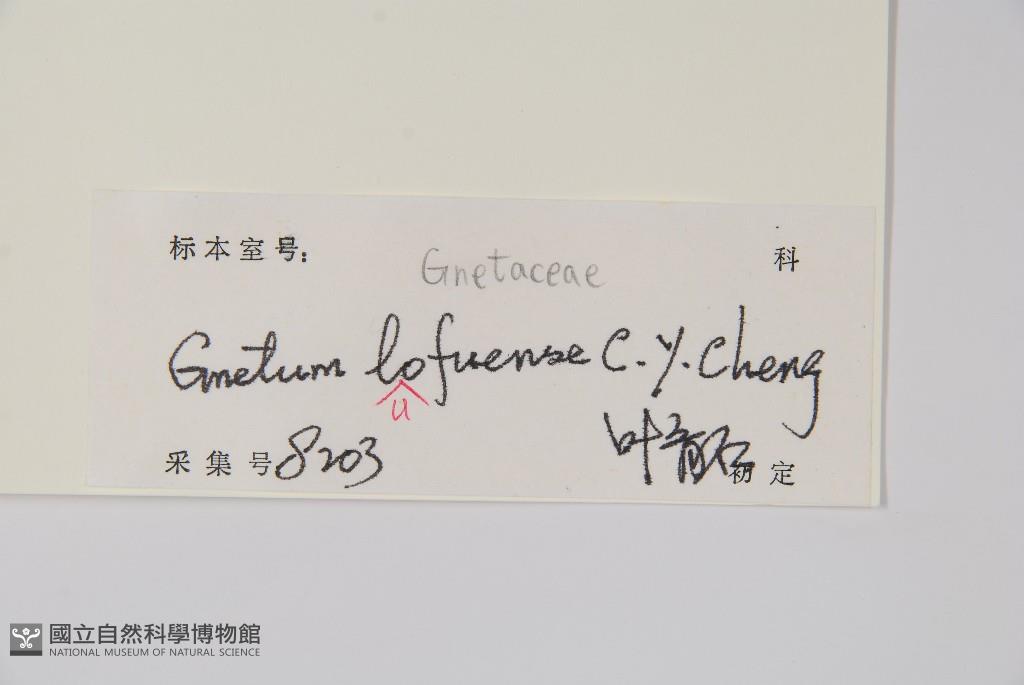 标本室号:
Gnetaceae 科
Gnetum lofuense C.Y.Cheng
u
采集号 8203 叶 初定
國立自然科學博物館
NATIONAL MUSEUM OF NATURAL SCIENCE